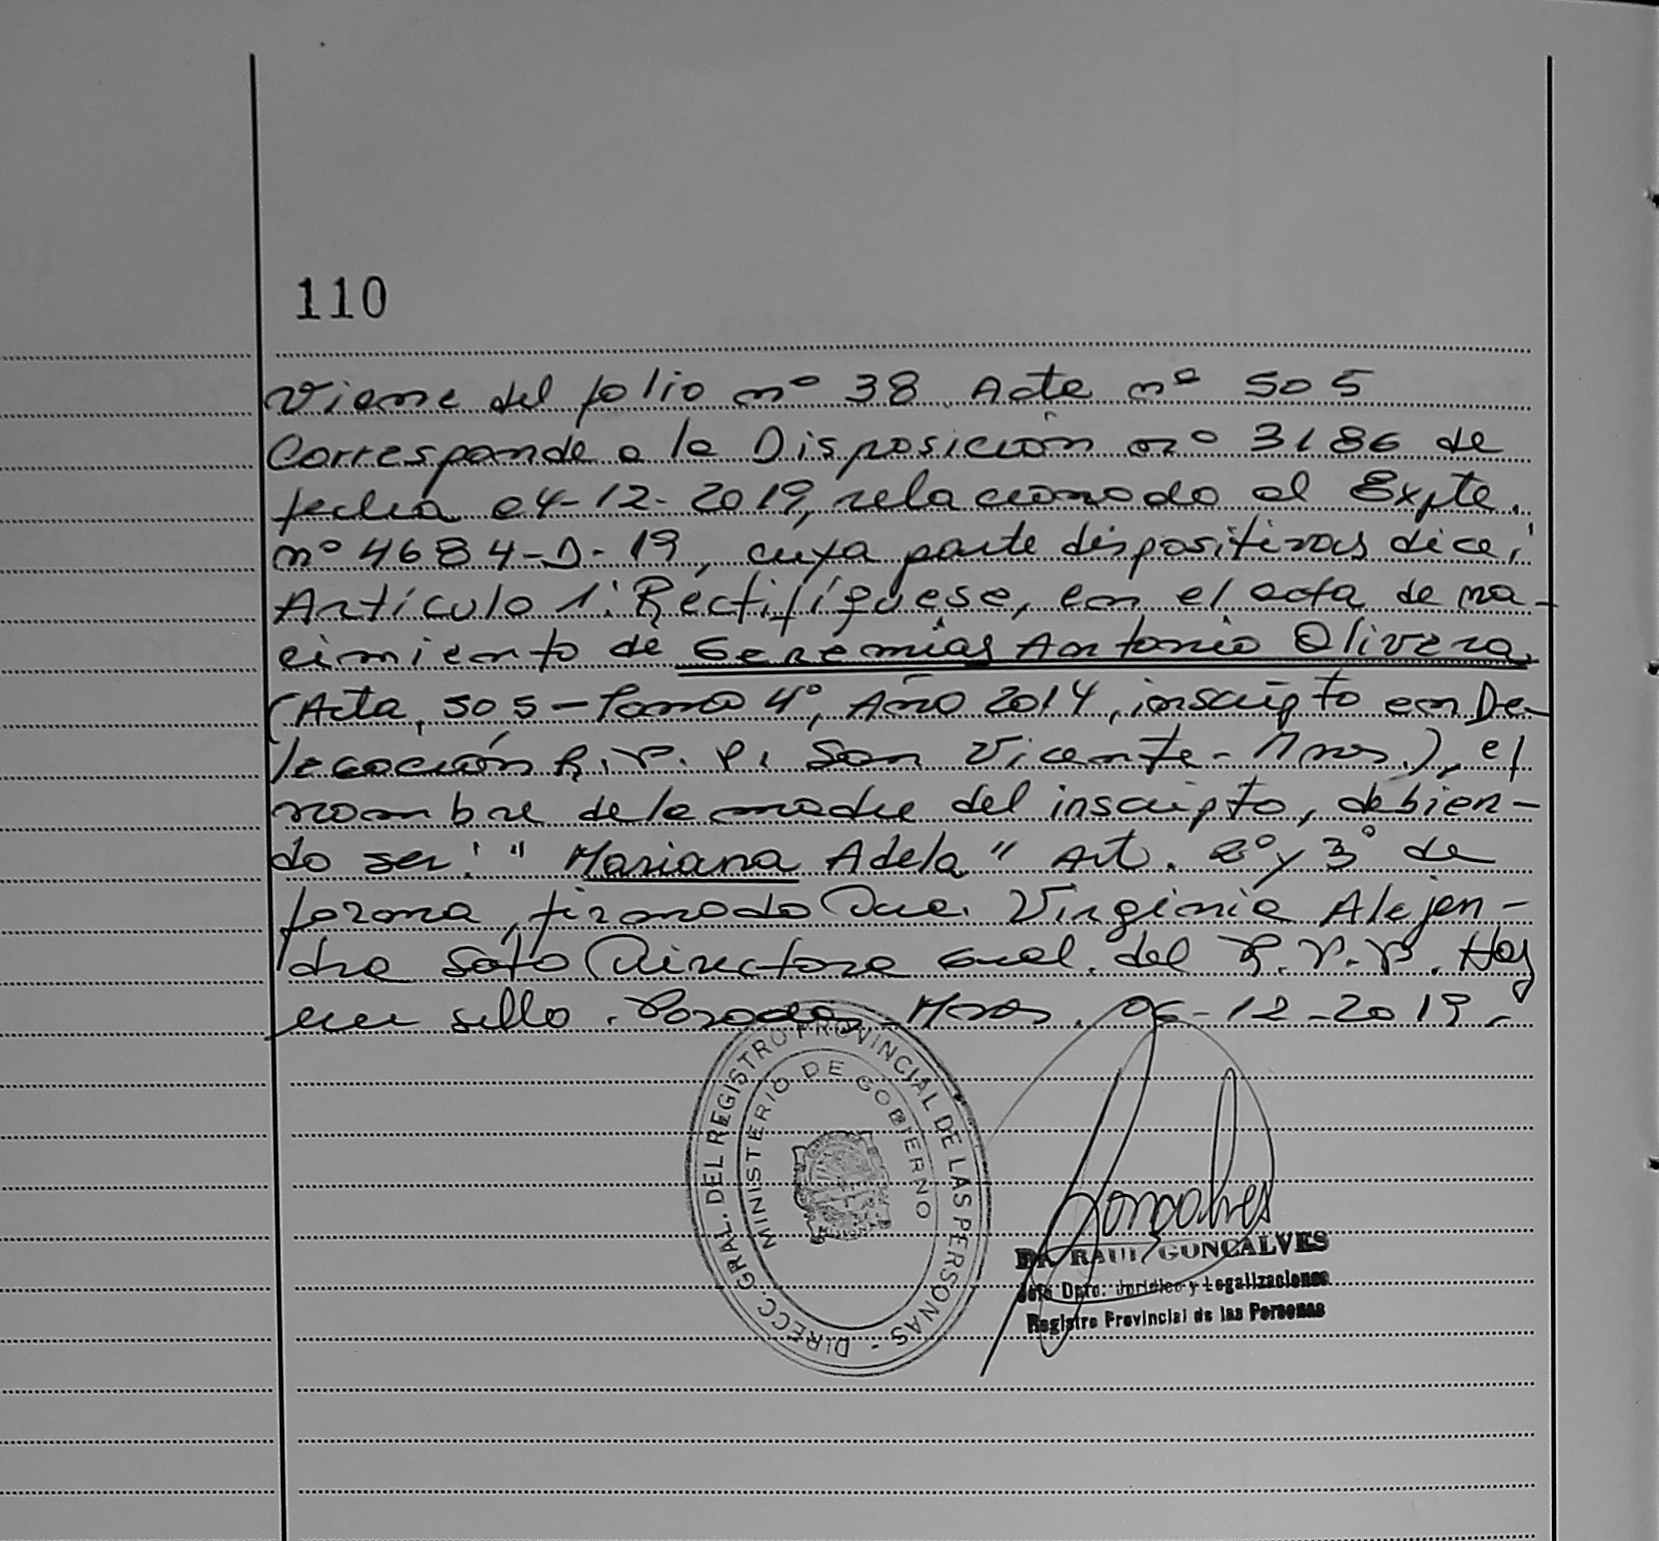 110
Viene del folio nº 38 Acta nº 505
Corresponde a la Disposición nº 3186 de
fecha 04-12-2019, relacionado al Expte.
nº 4684-D-19, cuya parte dispositivas dice:
Artículo 1: Rectifíquese, en el acta de na-
cimiento de Geremías Antonio Olivera
(Acta, 505 - Tomo 4º, Año 2014, inscripto en De-
legación R.P.P. San Vicente - Mnes.), el
nombre de la madre del inscripto, debien-
do ser: "Mariana Adela" Art. 2º y 3º de
forma, firmado Dra. Virginia Alejan-
dra Soto Directora Gral. del R.P.P. Hay
un sello. Posadas - Mnes. 06-12-2019.-
DIRECC. GRAL. DEL REGISTRO PROVINCIAL DE LAS PERSONAS -
MINISTERIO DE GOBIERNO
Goncalves
DR. RAUL GONCALVES
Jefe Dpto. Jurídico y Legalizaciones
Registro Provincial de las Personas